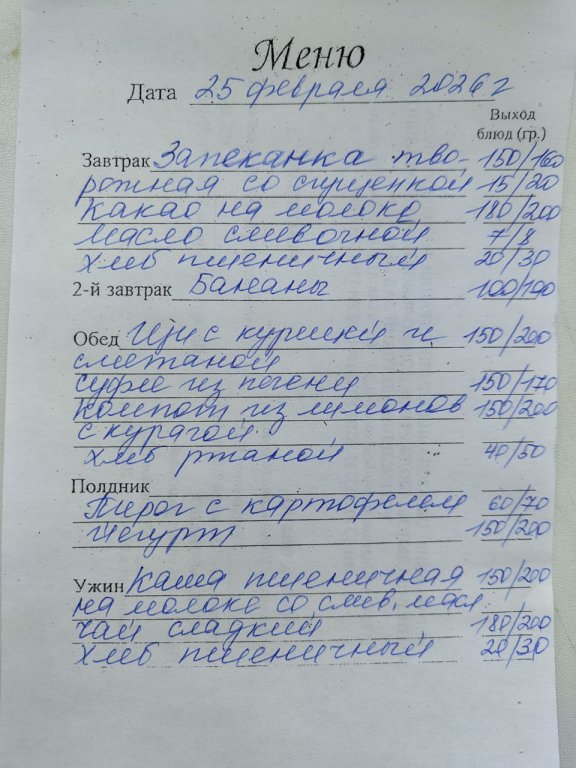 Меню
Дата 25 февраля 2026 г
Выход
блюд (гр.)
Завтрак Запеканка тво- 150/160
рожная со сгущенкой 15/20
Какао на молоке 180/200
Масло сливочной 7/8
Хлеб пшеничный 20/30
2-й завтрак Бананы 100/100
Обед Щи с курицей и 150/200
сметаной
Суфле из печени 150/170
Компот из лимонов 150/200
с курагой
Хлеб ржаной 40/50
Полдник
Пирог с картофелем 60/70
Йегурт 150/200
Ужин Каша пшеничная 150/200
на молоке со слив. масл
Чай сладкий 180/200
Хлеб пшеничный 20/30